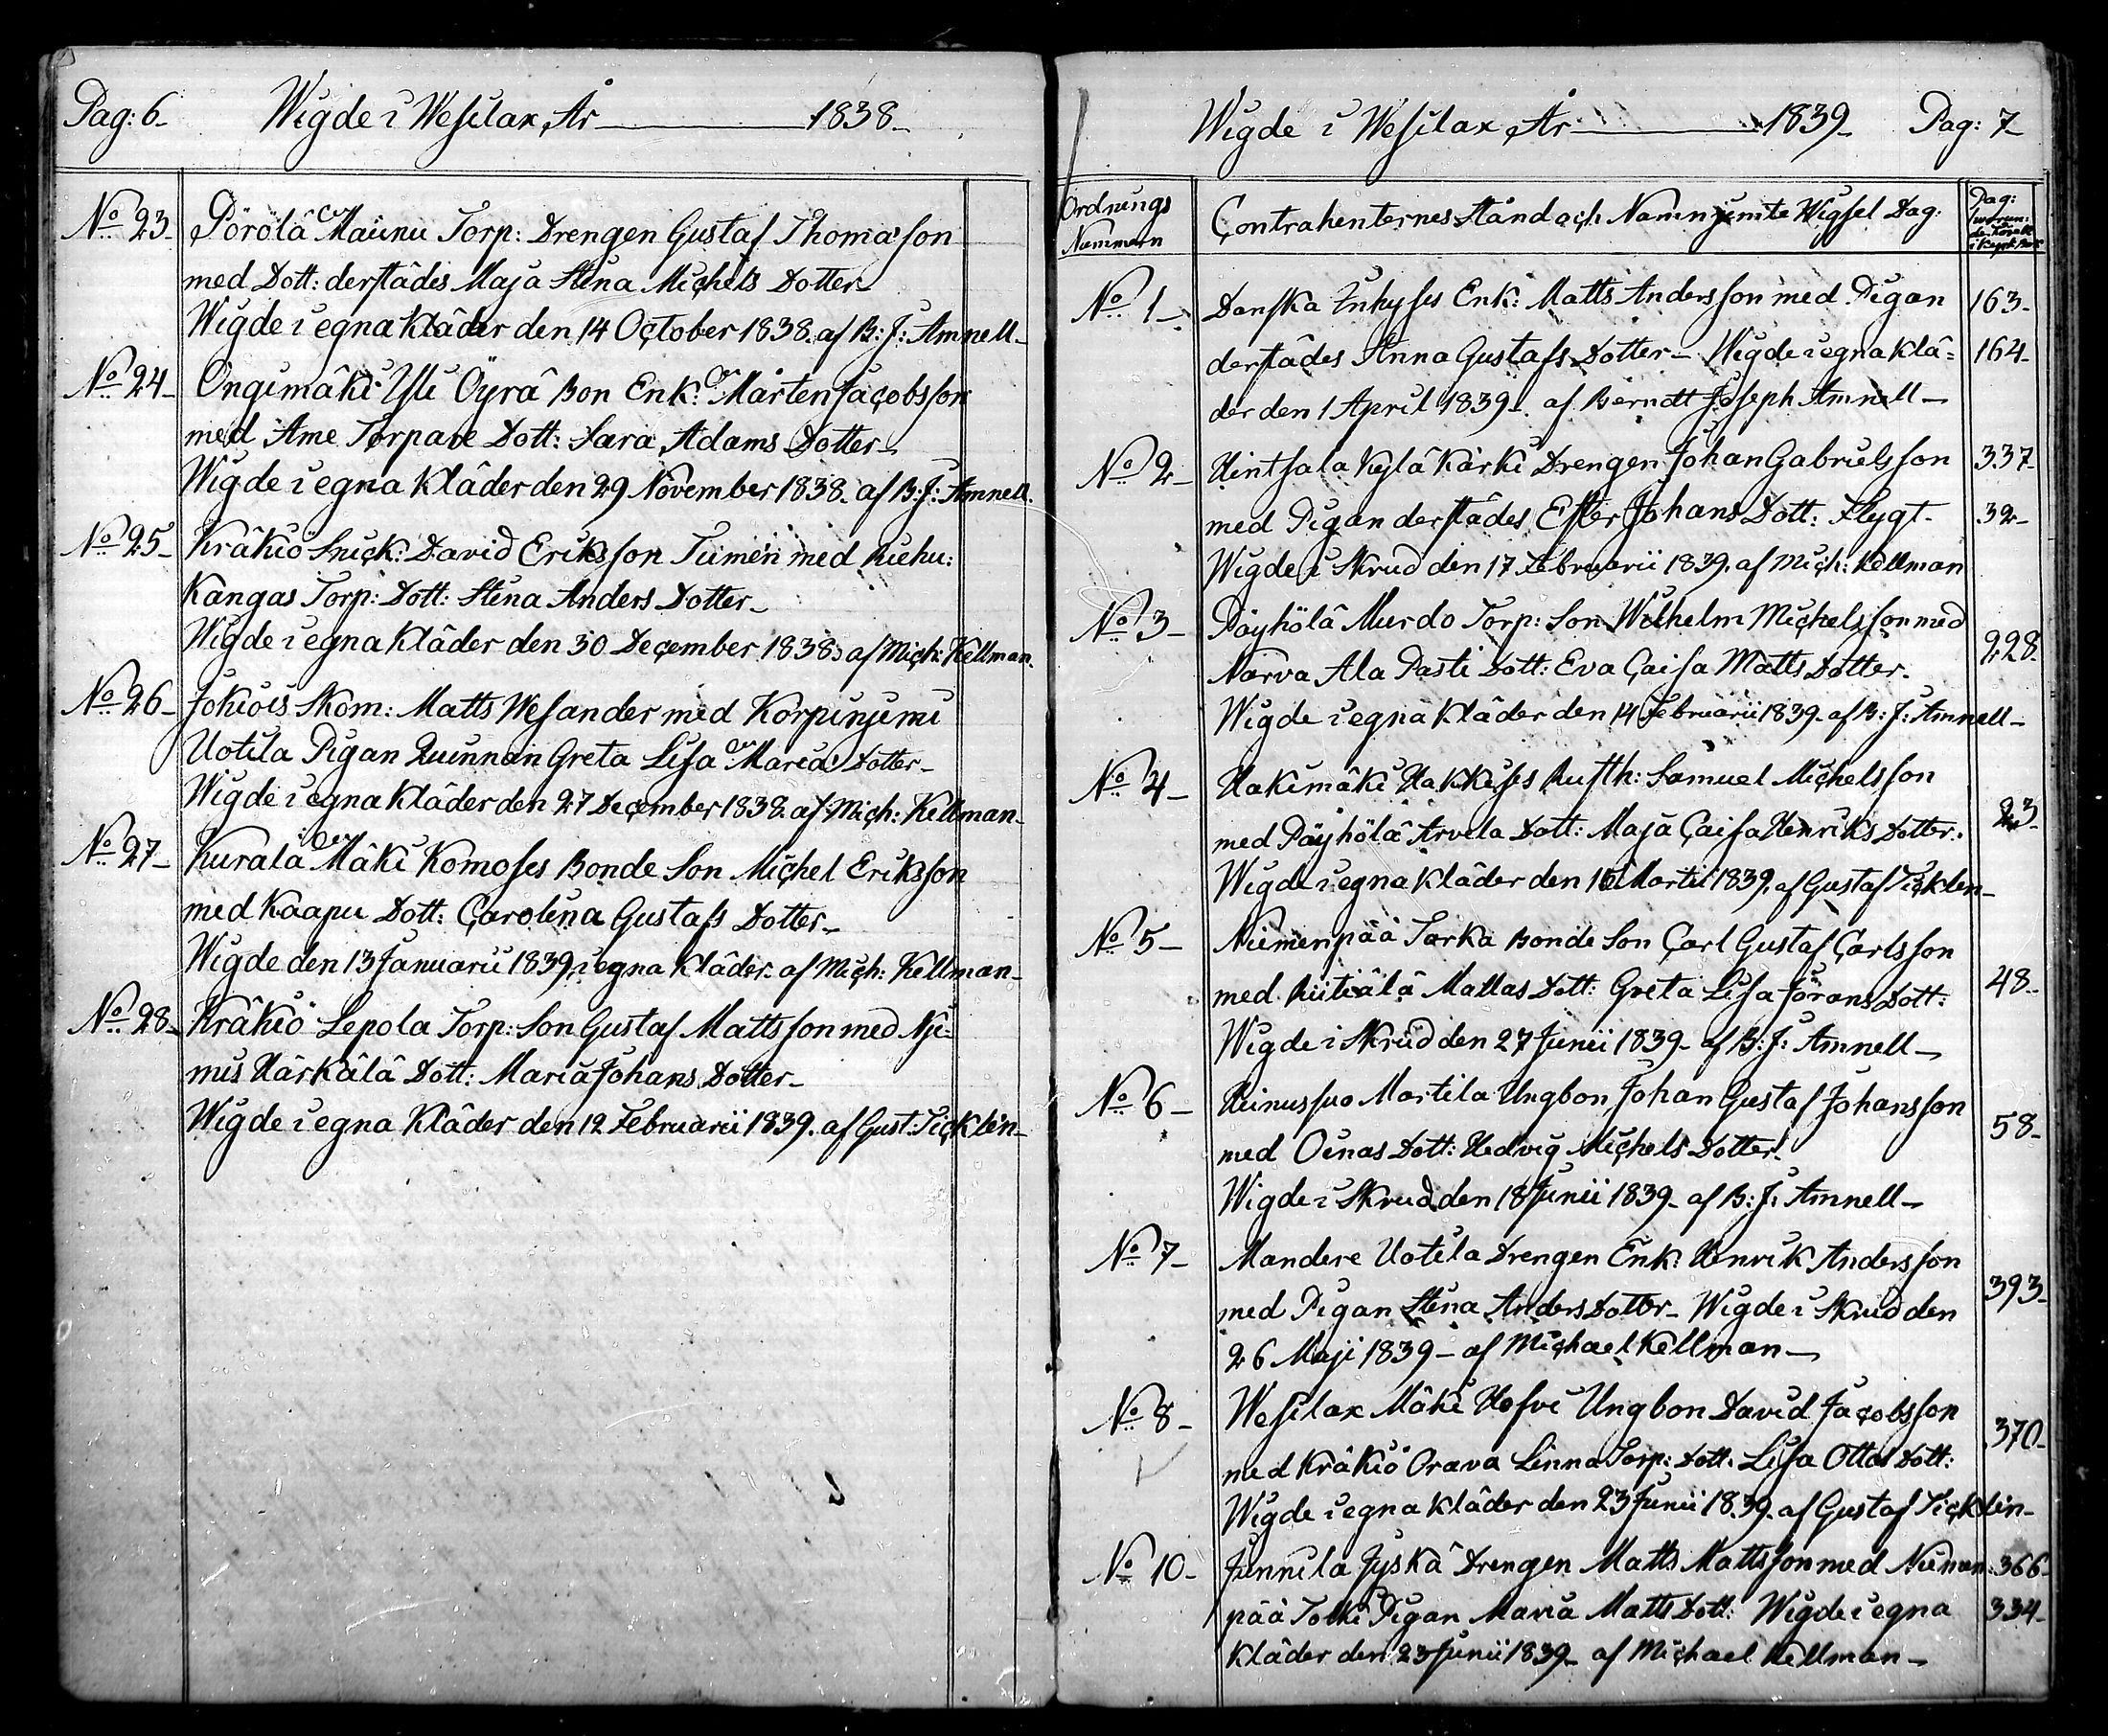 Pag: 6. Wigde i Wesilax, År 1838.
No 23. Pörölä Maunu Torp: Drengen Gustaf Thomasson
med Dott: derstädes Maja Stina Michels Dotter
Wigde i egna Kläder den 14 October 1838. af B: J: Amnell.
No 24. Ongimäki Yli Öyrä Bon Enk: Mårten Jacobsson
med Ame Torpare Dott: Sara Adams Dotter
Wigde i egna Kläder den 29 November 1838. af B: J: Amnell.
No 25. Kräkiö Snick: David Eriksson Timén med Riehu:
Kangas Torp: Dott: Stina Anders Dotter
Wigde i egna Kläder den 30 December 1838. af Mich: Kellman.
No 26. Jokiois Skom: Matts Wesander med Korpinjemi
Uotila Pigan Qvinnan Greta Lisa Maria Dotter
Wigde i egna Kläder den 27 December 1838. af Mich: Kellman.
No 27. Kurala Mäki Komoses Bonde Son Michel Eriksson
med Kaapu Dott: Carolina Gustafs Dotter
Wigde den 13 Januarii 1839, i egna Kläder. af Mich: Kellman.
No 28. Kräkiö Lepola Torp: Son Gustaf Mattsson med Nje-
mis Härkälä Dott: Maria Johans Dotter
Wigde i egna Kläder den 12 Februarii 1839. af Gust: Ticklén
Wigde i Wesilax, År 1839. Pag: 7
Ordnings Nummern Contrahenternes Stånd och Namn jemte Wigsel Dag: Pag:
No 1 Danska Inhyses Enk: Matts Andersson med Pigan 163.
derstädes Anna Gustafs Dotter. Wigde i egna Klä- 164
der den 1 April 1839. af Berndt Joseph Amnell
No 2 Hintsala Kylä Kärki Drengen Johan Gabrielsson 337
med Pigan derstädes Ester Johans Dott: Flygt. 32
Wigde i Skrud den 17 Februarii 1839. af Mich: Kellman
No 3 Päyhölä Murdo Torp: Son Wilhelm Michelsson med
Narva Ala Pasti Dott: Eva Caisa Matts Dotter. 228.
Wigde i egna Kläder den 14 Februarii 1839. af B: J: Amnell
No 4 Hakimäki Hakkises Rusth: Samuel Michelsson
med Päyhölä Arvela Dott: Maja Caisa Henriks Dotter. 23
Wigde i egna Kläder den Martii 1839. af Gustaf Ticklén
No 5 Niemenpää Tarka Bonde Son Carl Gustaf Carlsson
med Riitiälä Mattas Dott: Greta Lisa Jörans Dott: 48
Wigde i Skrud den 27 Junii 1839. af B: J: Amnell
No 6 Hinussuo Martila Ungbon Johan Gustaf Johansson
med Oinas Dott: Hedvig Michels Dotter. 58
Wigde i Skrud den 18 Junii 1839. af B: J: Amnell
No 7 Mandere Uotila Drengen Enk: Henrik Andersson
med Pigan Stina Anders Dotter. Wigde i Skrud den 393
26 Maji 1839. af Michael Kellman
No 8 Wesilax Mäki Hofvi Ungbon David Jacobsson
med Kräkiö Orava Linna Torp: Dott: Lisa Otto Dott: 370
Wigde i egna Kläder den 23 Junii 1839. af Gustaf Ticklén
No 10. Junnila Jyskä Drengen Matts Mattsson med Nieman: 366
pää Tolki Pigan Maria Matts Dott: Wigde i egna 334
Kläder den 23 Junii 1839. af Michael Kellman